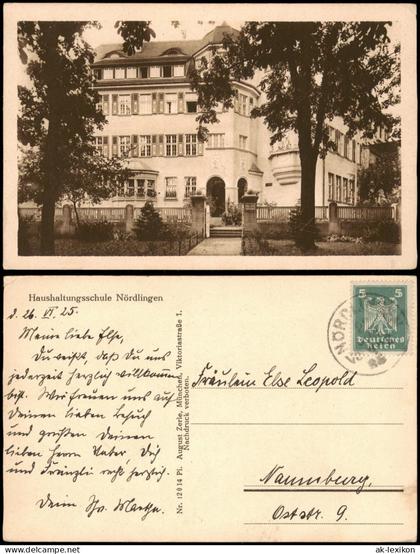 Haushaltungsschule Nördlingen
d. 26. VI. 25.
Meine liebe Else,
Du weißt, daß Du uns
jederzeit herzlich willkommen
bist. Wir freuen uns auf
Deinen lieben Besuch
und grüßen Deinen
lieben Herrn Vater, Dich
und Fränzli recht herzlich.
Deine Schw. Martha.
Nr. 12014 Pl. August Zerle, München, Viktoriastraße 1.
Nachdruck verboten.
5 5
Deutsches
Reich
NÖRD
Fräulein Else Leopold
Naumburg,
Oststr. 9.
www.ak-lexikon.de
© ak-lexikon